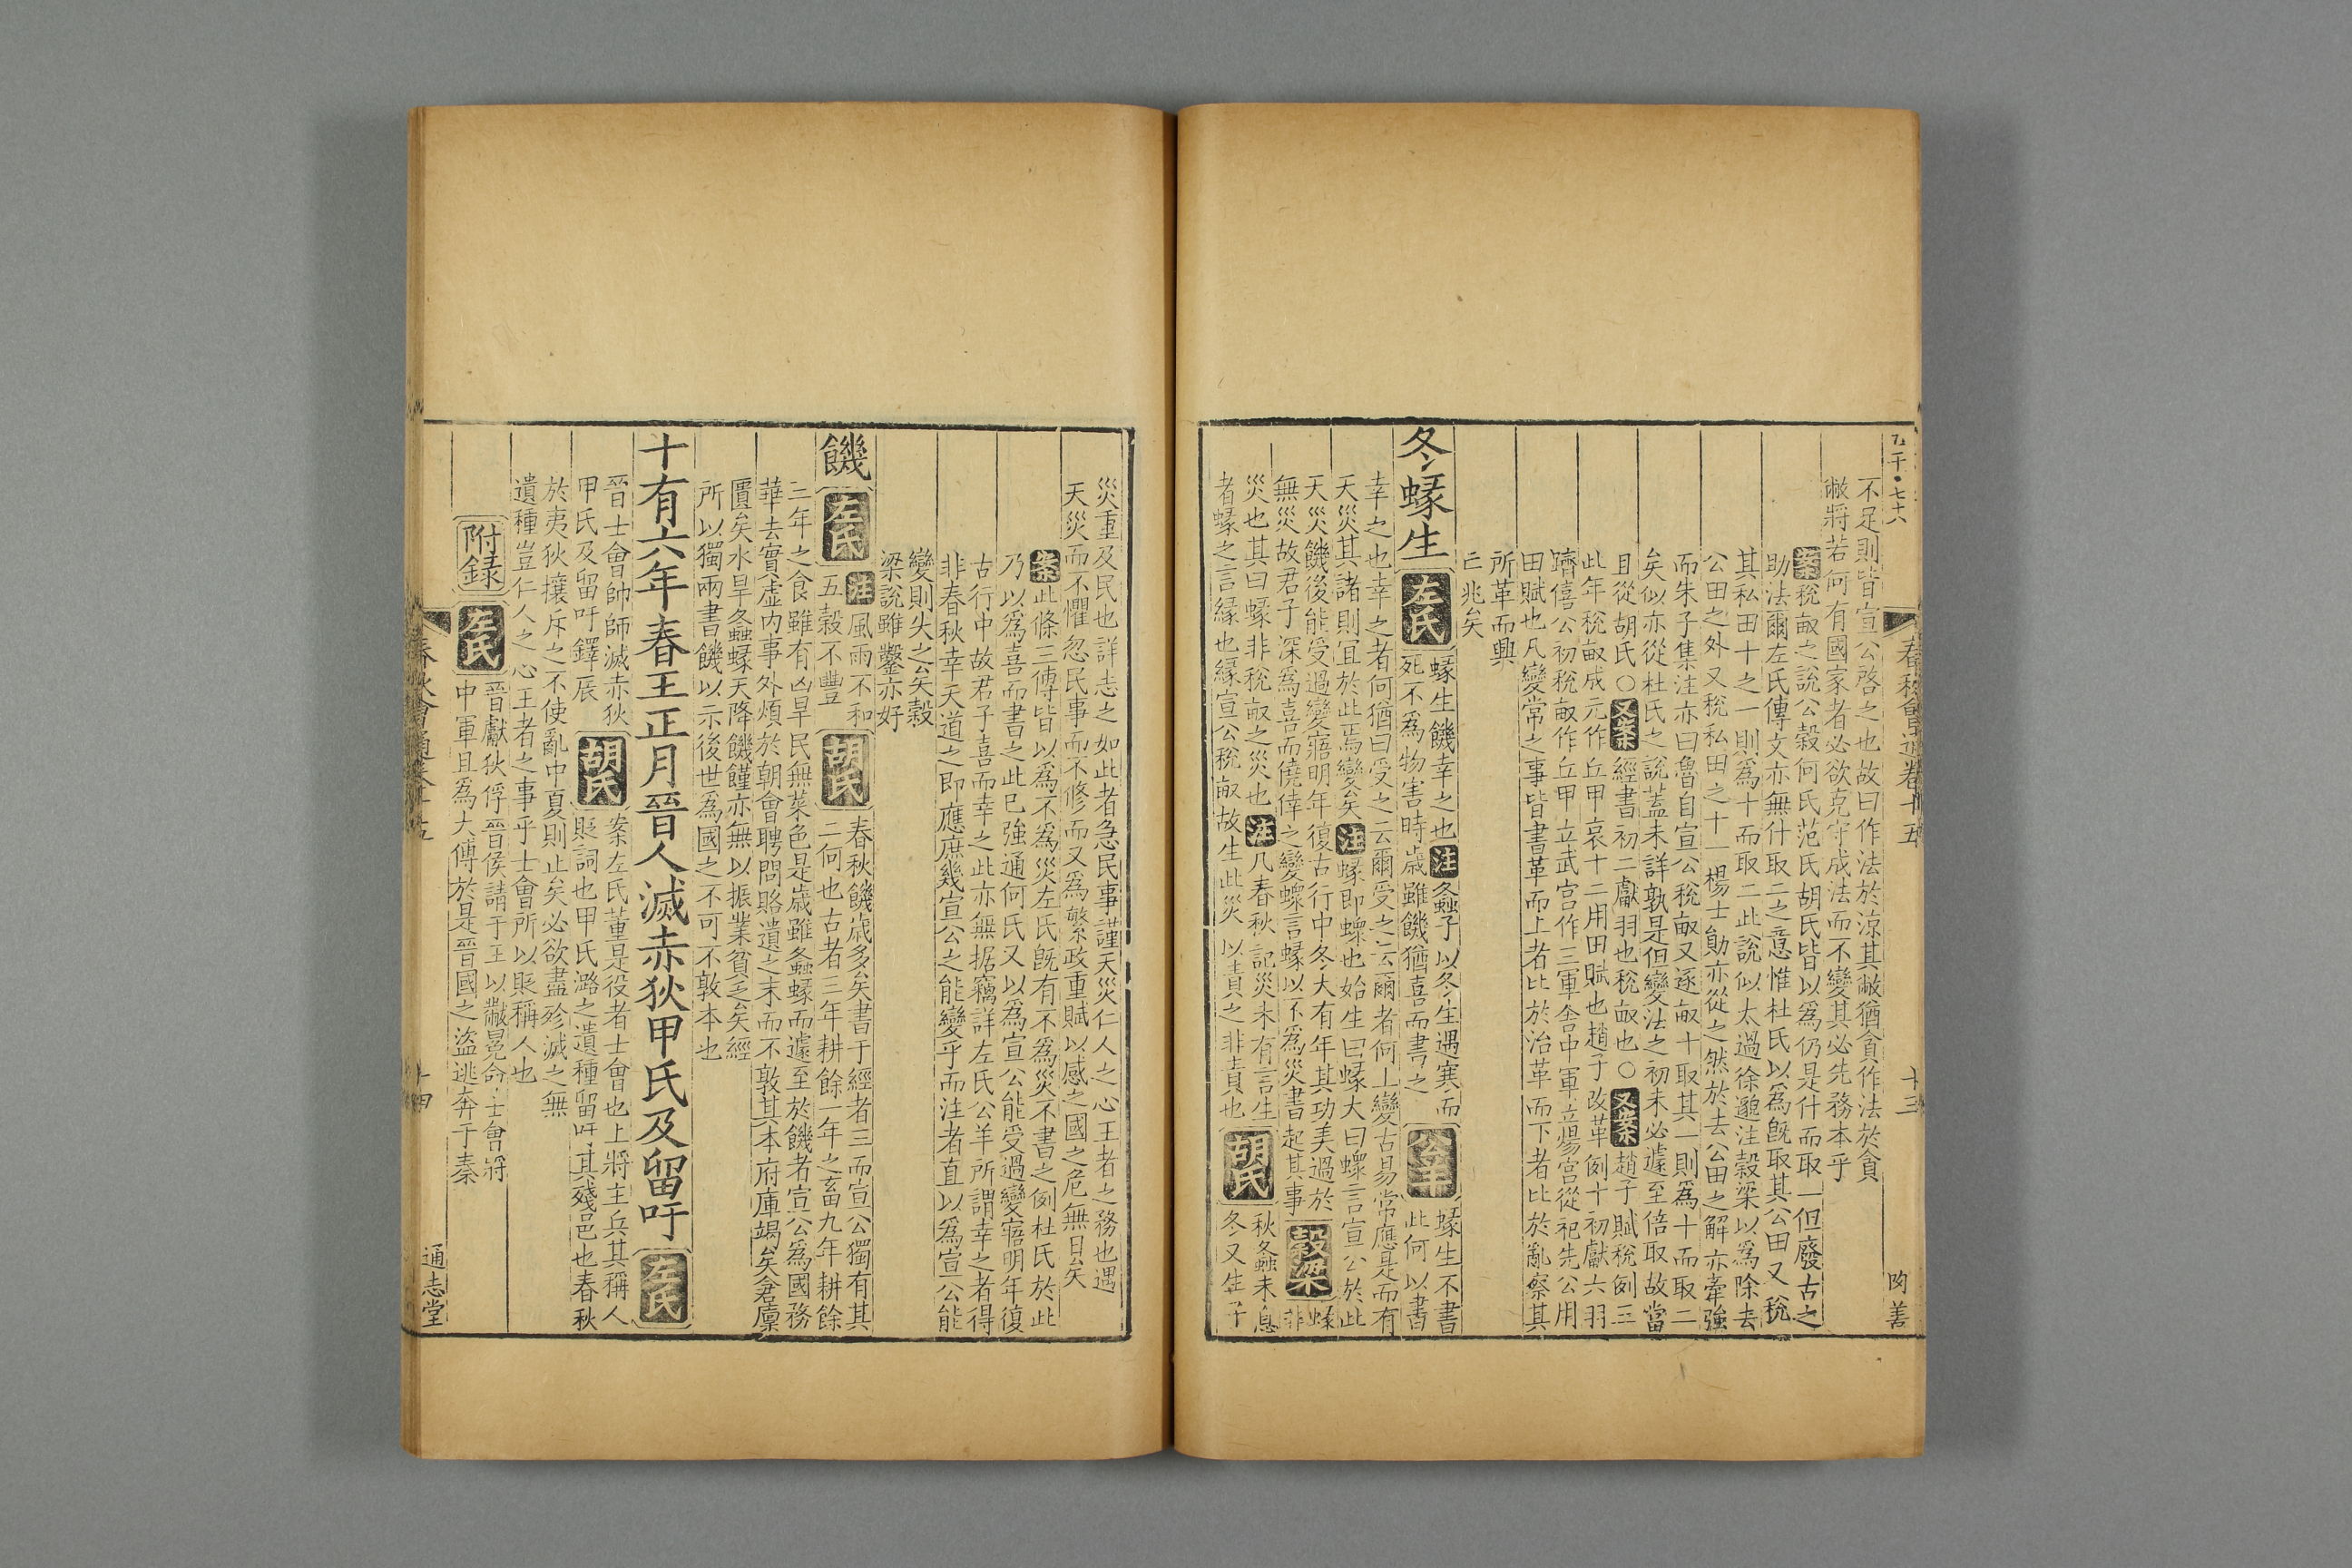 五千·七十六
春秋會通卷十五
十三
陶善
不足則皆宣公啓之也故曰作法於涼其敝猶貪作法於貪
敝將若何有國家者必欲克守成法而不變其必先務本乎
案稅畝之說公榖何氏范氏胡氏皆以為仍是什而取一但廢古之
助法爾左氏傳文亦無什取二之意惟杜氏以為旣取其公田又稅
其私田十之一則為十而取二此說似太過徐邈注榖梁以為除去
公田之外又稅私田之十一楊士勛亦從之然於去公田之解亦牽強
而朱子集注亦曰魯自宣公稅畝又逐畝十取其一則為十而取二
矣似亦從杜氏之說蓋未詳孰是但變法之初未必遽至倍取故當
且從胡氏○又案經書初二獻羽也稅畝也○又案趙子賦稅例三
此年稅畝成元作丘甲哀十二用田賦也趙子改革例十初獻六羽
躋僖公初稅畝作丘甲立武宮作三軍舍中軍立煬宮從祀先公用
田賦也凡變常之事皆書革而上者比於治革而下者比於亂察其
所革而興
亡兆矣
冬蝝生
左氏
蝝生饑幸之也注螽子以冬生遇寒而
死不為物害時歲雖饑猶喜而書之
公羊
蝝生不書
此何以書
幸之也幸之者何猶曰受之云爾受之云爾者何上變古易常應是而有
天災其諸則宜於此焉變矣注蝝即螟也始生曰蝝大曰螽言宣公於此
天災饑後能受過變寤明年復古行中冬大有年其功美過於
無災故君子深為喜而僥倖之變螟言蝝以不為災書起其事
榖梁
蝝
非
災也其曰蝝非稅畝之災也注凡春秋記災未有言生
者蝝之言緣也緣宣公稅畝故生此災以責之非責也
胡氏
秋螽未息
冬又生子
災重及民也詳志之如此者急民事謹天災仁人之心王者之務也遇
天災而不懼忽民事而不修而又為繁政重賦以感之國之危無日矣
案此條三傳皆以為不為災左氏旣有不為災不書之例杜氏於此
乃以為喜而書之此已強通何氏又以為宣公能受過變寤明年復
古行中故君子喜而幸之此亦無据竊詳左氏公羊所謂幸之者得
非春秋幸天道之即應庶幾宣公之能變乎而注者直以為宣公能
變則失之矣榖
梁說雖鑿亦好
饑
左氏
注風雨不和
五穀不豐
胡氏
春秋饑歲多矣書于經者三而宣公獨有其
二何也古者三年耕餘一年之畜九年耕餘
三年之食雖有凶旱民無菜色是歲雖螽蝝而遽至於饑者宣公為國務
華去實虛內事外煩於朝會聘問賂遺之末而不敦其本府庫竭矣倉廩
匱矣水旱冬螽蝝天降饑饉亦無以振業貧乏矣經
所以獨兩書饑以示後世為國之不可不敦本也
十有六年春王正月晉人滅赤狄甲氏及留吁
左氏
晉士會帥師滅赤狄
甲氏及留吁鐸辰
胡氏
案左氏董是役者士會也上將主兵其稱人
貶詞也甲氏潞之遺種留吁其殘邑也春秋
於夷狄攘斥之不使亂中夏則止矣必欲盡殄滅之無
遺種豈仁人之心王者之事乎士會所以貶稱人也
附錄
左氏
晉獻狄俘晉侯請于王以黻冕命士會將
中軍且為大傅於是晉國之盜逃奔于秦
春秋會通卷十五
十四
通志堂